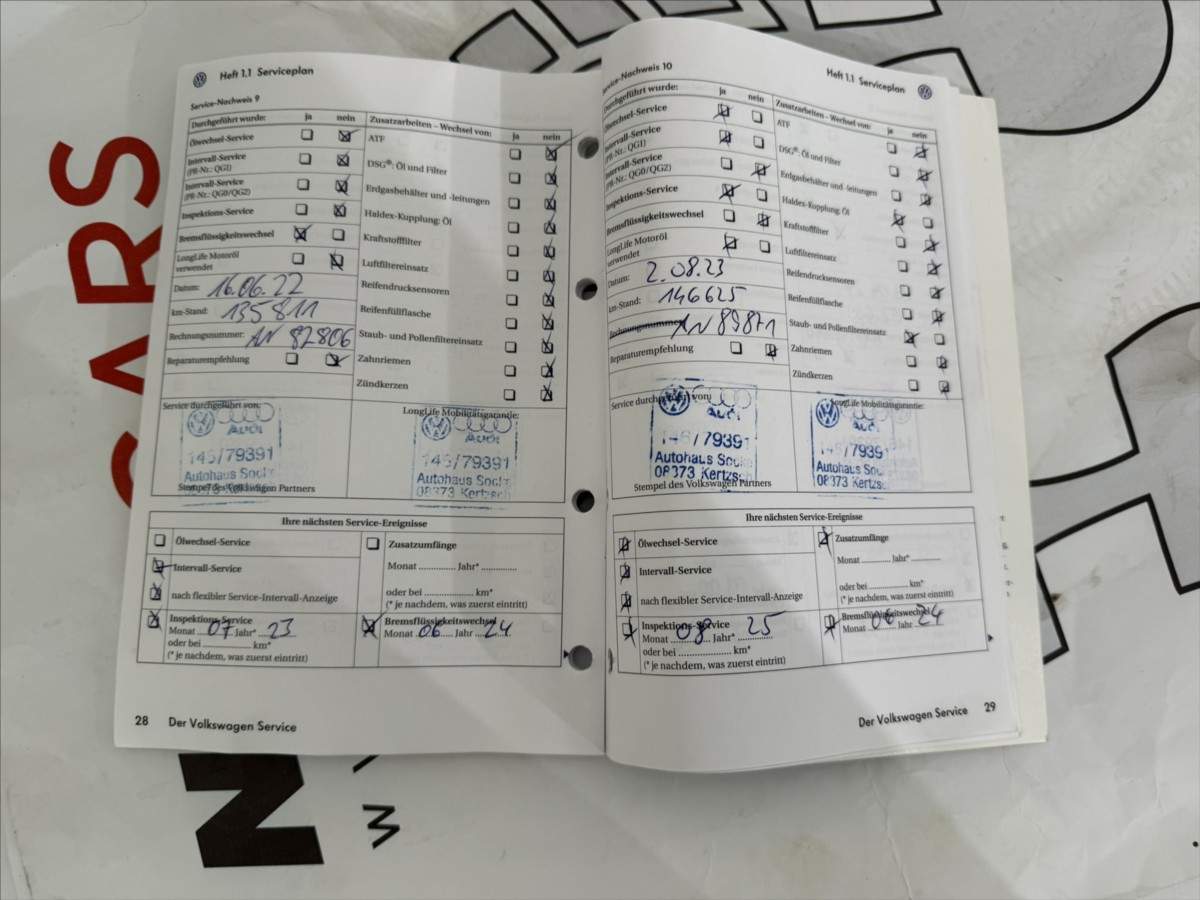 Heft 1.1 Serviceplan
Service-Nachweis 9
Durchgeführt wurde: ja nein
Ölwechsel-Service
Intervall-Service
(PR-Nr.: QG1)
Intervall-Service
(PR-Nr.: QG0/QG2)
Inspektions-Service
Bremsflüssigkeitswechsel
LongLife Motoröl
verwendet
Datum: 16.06.22
km-Stand: 135811
Rechnungsnummer: AN 82806
Reparaturempfehlung
Zusatzarbeiten – Wechsel von: ja nein
ATF
DSG®: Öl und Filter
Erdgasbehälter und -leitungen
Haldex-Kupplung: Öl
Kraftstofffilter
Luftfiltereinsatz
Reifendrucksensoren
Reifenfüllflasche
Staub- und Pollenfiltereinsatz
Zahnriemen
Zündkerzen
Service durchgeführt von:
AUDI
145/79391
Autohaus
Stempel des Volkswagen Partners
LongLife Mobilitätsgarantie:
AUDI
145/79391
Autohaus
08373
Ihre nächsten Service-Ereignisse
Ölwechsel-Service
Intervall-Service
nach flexibler Service-Intervall-Anzeige
Inspektions-Service
Monat 07 Jahr* 23
oder bei .................. km*
(* je nachdem, was zuerst eintritt)
Zusatzumfänge
Monat ............. Jahr* .............
oder bei .................. km*
(* je nachdem, was zuerst eintritt)
Bremsflüssigkeitswechsel
Monat 06 Jahr 24
28 Der Volkswagen Service
Heft 1.1 Serviceplan
Service-Nachweis 10
Durchgeführt wurde: ja nein
Ölwechsel-Service
Intervall-Service
(PR-Nr.: QG1)
Intervall-Service
(PR-Nr.: QG0/QG2)
Inspektions-Service
Bremsflüssigkeitswechsel
LongLife Motoröl
verwendet
Datum: 2.08.23
km-Stand: 146625
Rechnungsnummer AN 89871
Reparaturempfehlung
Zusatzarbeiten – Wechsel von: ja nein
ATF
DSG®: Öl und Filter
Erdgasbehälter und -leitungen
Haldex-Kupplung: Öl
Kraftstofffilter
Luftfiltereinsatz
Reifendrucksensoren
Reifenfüllflasche
Staub- und Pollenfiltereinsatz
Zahnriemen
Zündkerzen
Service durchgeführt von:
AUDI
145/79391
Autohaus
08373 Kertzsch
Stempel des Volkswagen Partners
LongLife Mobilitätsgarantie:
AUDI
145/79391
Autohaus
08373
Ihre nächsten Service-Ereignisse
Ölwechsel-Service
Intervall-Service
nach flexibler Service-Intervall-Anzeige
Inspektions-Service
Monat 08 Jahr* 25
oder bei .................. km*
(* je nachdem, was zuerst eintritt)
Zusatzumfänge
Monat ............. Jahr* .............
oder bei .................. km*
(* je nachdem, was zuerst eintritt)
Bremsflüssigkeitswechsel
Monat 06 Jahr 24
Der Volkswagen Service 29
CARS